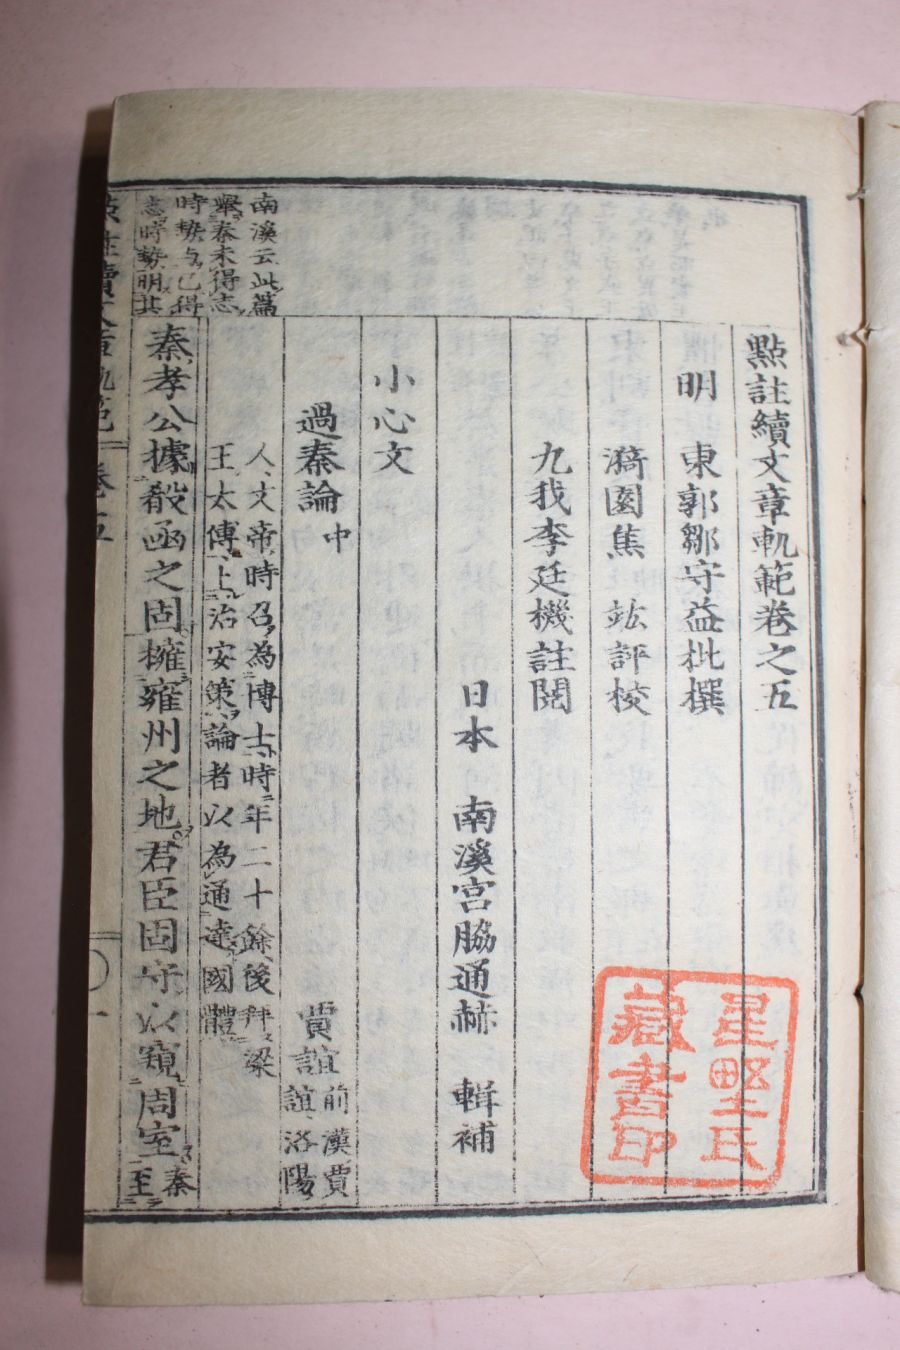 點註續文章軌範卷之五
明 東郭鄒守益批撰
漪園焦 竑評校
九我李廷機註閱
日本 南溪宮脇通赫 輯補
小心文
過秦論 中 賈誼 前漢賈誼洛陽
人文帝時召為博士時年二十餘後拜梁
王太傅上治安策論者以為通達國體
秦孝公據殽函之固擁雍州之地君臣固守以窺周室 秦至
南溪云此篇
舉秦未得志
時勢與已得
志時勢明其
星野氏
藏書印